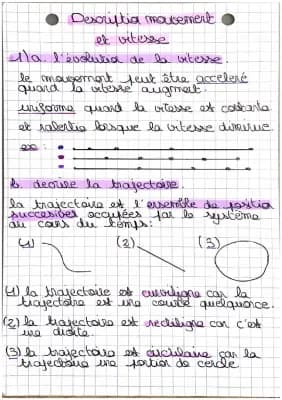 Description mouvement
et vitesse
1)a. l'évolution de la vitesse.
le mouvement peut être acceleré
quand la vitesse augment.
uniforme quand la vitesse est constante
et ralentie lorsque la vitesse diminue.
ex :
b. decrire la trajectoire.
la trajectoire est l'ensemble de position
successives occupées par le système
au cours du temps:
(1) (2) (3)
(1) la trajectoire est curviligne car la
trajectoire est une courbe quelquonce.
(2) la trajectoire est rectiligne car c'est
une droite.
(3) la trajectoire est circulaire car la
trajectoire une portion de cercle